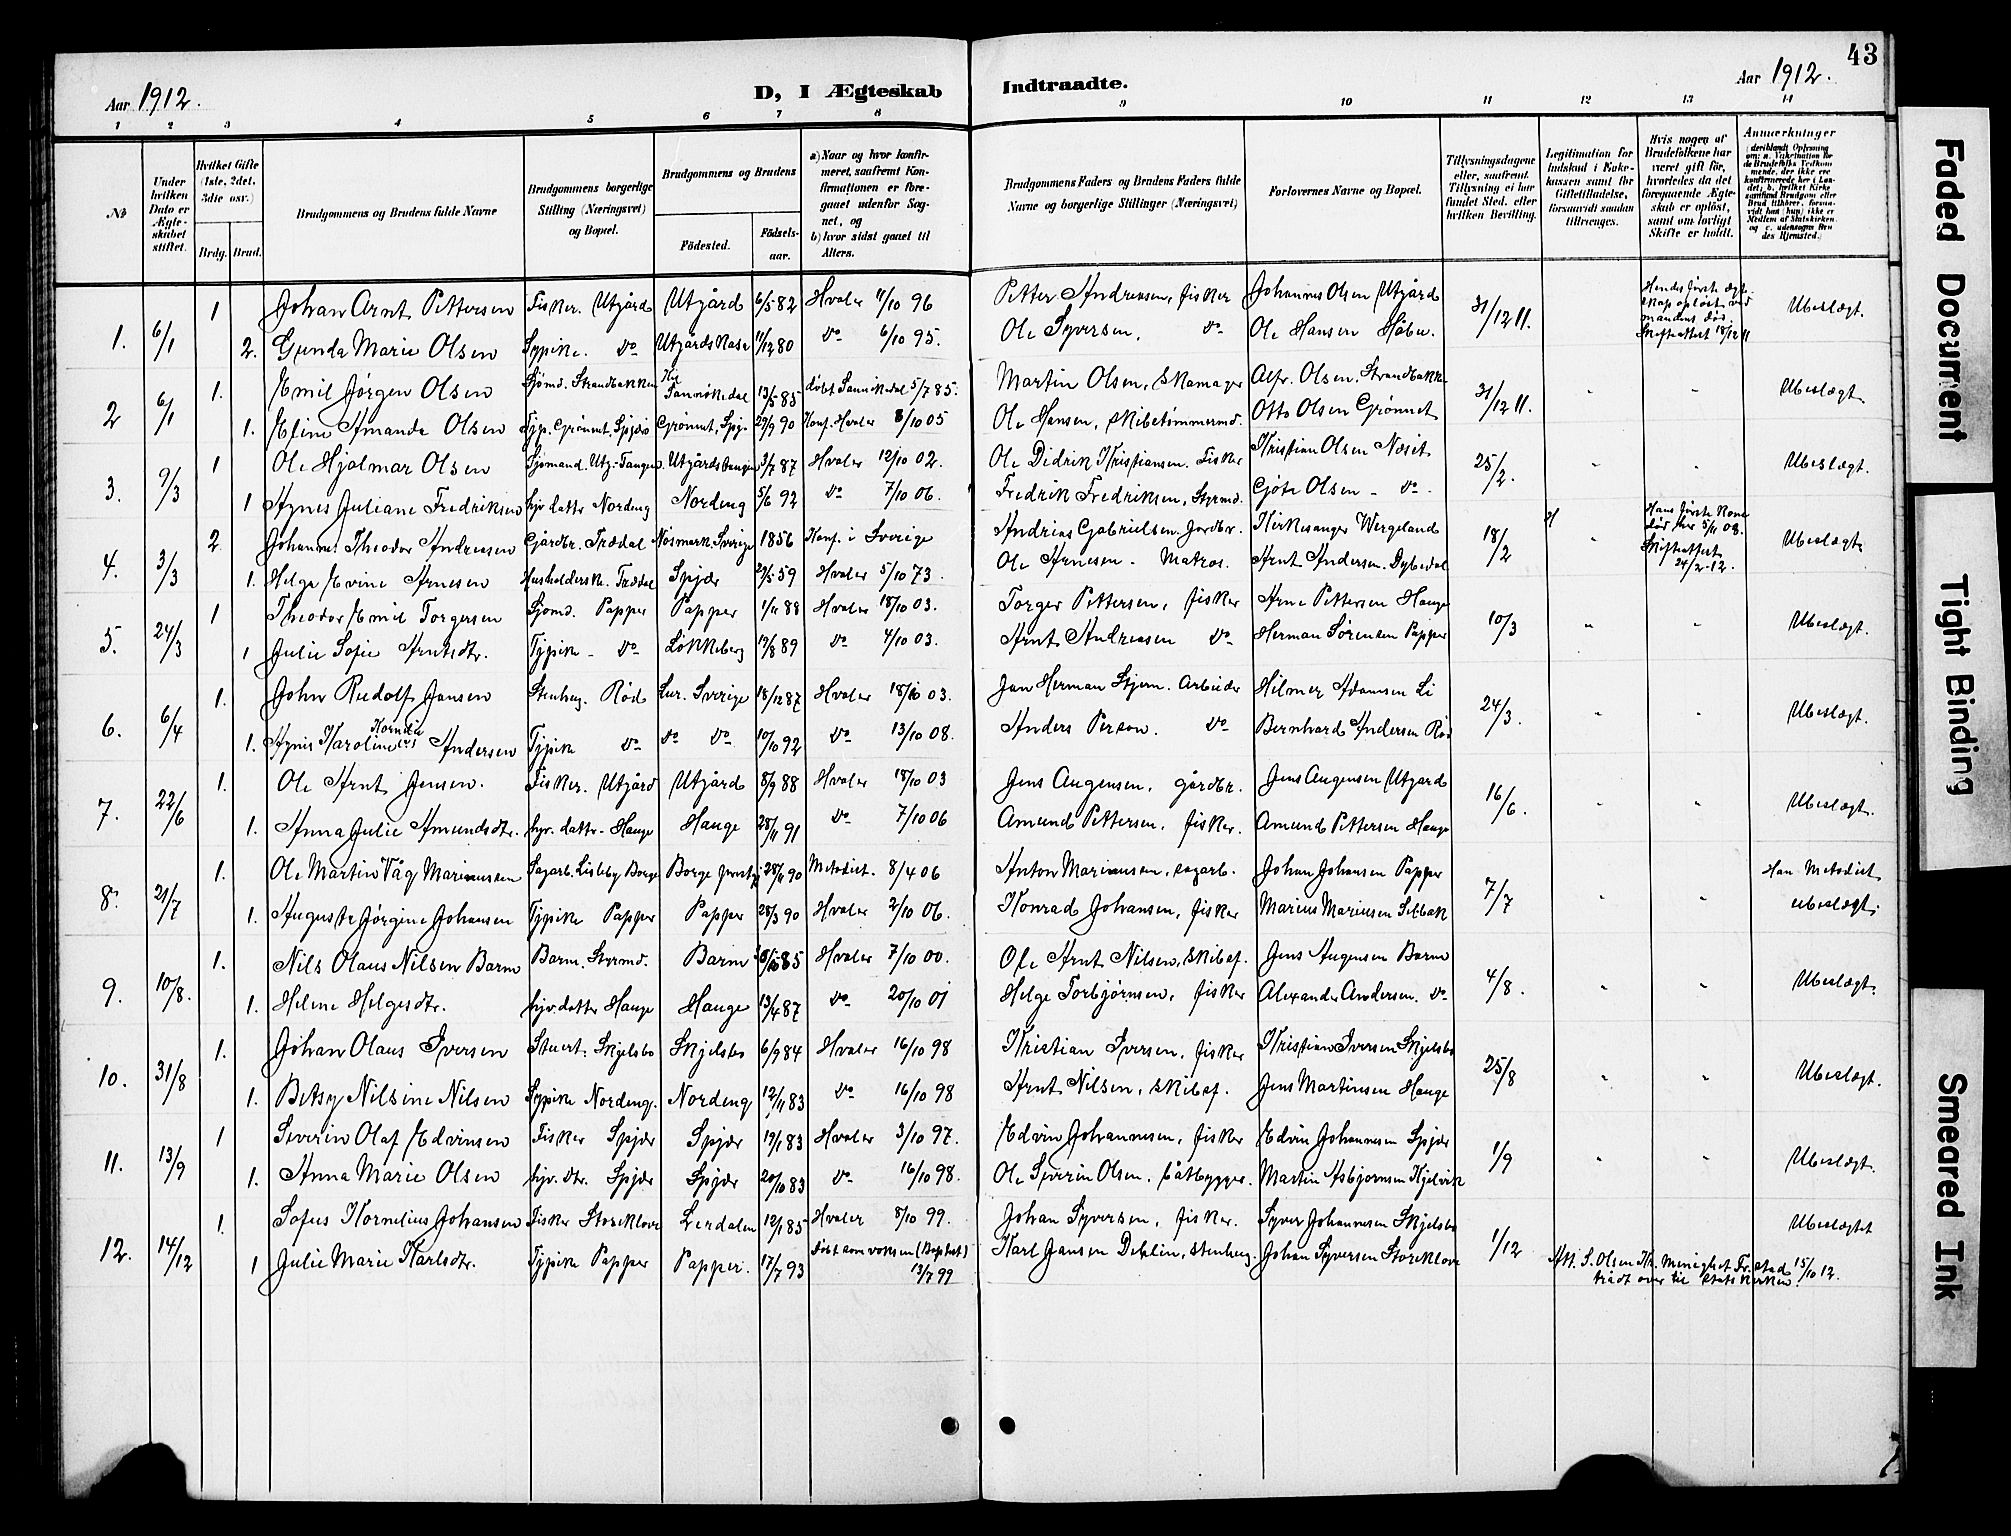 43
Aar 1912.
D, I Ægteskab Indtraadte.
Aar 1912.
1 2 3 4 5 6 7 8 9 10 11 12 13 14
№
Under hvilken Dato er Ægteskabet stiftet.
Hvilket Gifte (1ste, 2det, 3die osv.)
Brdg. Brud.
Brudgommens og Brudens fulde Navne
Brudgommens borgerlige Stilling (Næringsvei) og Bopæl.
Brudgommens og Brudens
Födested. Födselsaar.
a) Naar og hvor konfirmeret, saafremt Konfirmationen er foregaaet udenfor Sognet, og
b) hvor sidst gaaet til Alters.
Brudgommens Faders og Brudens Faders fulde Navne og borgerlige Stillinger (Næringsvei)
Forlovernes Navne og Bopæl.
Tillysningsdagene eller, saafremt Tillysning ei har fundet Sted, efter hvilken Bevilling.
Legitimation for Indskud i Enkekassen samt for Giftetilladelse, forsaavidt saadan tiltrænges.
Hvis nogen af Brudefolkene har været gift før, hvorledes da det foregaaende Ægteskab er oplöst, samt om lovligt Skifte er holdt.
Anmærkninger
1. 6/1 1 Johan Arnt Pettersen Fisker. Utgård Utgård 6/5 82 Hvaler 4/10 96 Petter Andreasen, fisker Johannes Olsen Utgård 31/12 11. Hendes første ægteskap opløst ved mandens død. Skifteattest 18/12 11 Ubeslægt.
2. Gunda Marie Olsen Sypike. do Utgårds Kasa 11/12 80 do 6/10 95. Ole Syversen, do Ole Hansen Håbu.
2 6/1 1. Emil Jørgen Olsen Sjømd. Strandbakken Sannikedal 13/5 85 døbt Sannikedal 5/7 85. Martin Olsen, Skomager Alfr. Olsen. Strandbakk. 31/12 11. " " Ubeslægt.
1. Eline Amanda Olsen Typ. Grønnet, Spjær Grønnet, Spj. 29/9 90 Konf. Hvaler 8/10 05 Ole Hansen, Skibstømmermd. Otto Olsen Grønnet
3. 9/3 1 Ole Hjalmar Olsen Sjömand. Utg. Tangen. Utgårds tangen 3/7 87 Hvaler 12/10 02. Ole Didrik Kristiansen. Fisker Kristian Olsen Noset 25/2. " " Ubeslægt.
1 Agnes Juliane Fredriksen hjv. datter Nordeng Nordeng 5/6 92 do 7/10 06. Fredrik Fredriksen, Styrmd. Gjøte Olsen - do -
4. 3/3 2. Johannes Theodor Andreasen Gårdbr. Trædal Nösmark. Sverige 1856 Konf. i Sverige Andreas Gabrielsen, Jordbr. Kirkesanger Wergeland 18/2 " Hans første Kone død her 5/11 08. Skifteattest 24/2-12. Ubeslægt.
1. Helga Evine Arnesen Husholderske. Trædal Spjær 29/5 59 Hvaler 5/10 73. Ole Arnesen - Matros. Arnt Andersen. Dybedal
5. 24/3 1 Theodor Emil Torgersen Sjømd. Papper Papper 1/11 88 Hvaler 18/10 03. Torger Pettersen, fisker Arne Pettersen Hauge 10/3 " " Ubeslægt.
1 Julie Sofie Arntsdtr. Typike - do Løkkeberg 19/8 89 do 4/10 03. Arnt Andreasen do Herman Sørensen Papper
6. 6/4 1. John Rudolf Jansen Stenhug. Rød Lur. Sverige 18/12 87 Hvaler 18/10 03. Jan Herman Stjern. Arbeider Hilmer Adamsen Li 24/3. " " Ubeslægt.
1. Agnes Karoline Kornelia Andersen Typike do do do 10/10 92 do 13/10 08. Anders Person. do Bernhard Andersen Rød
7. 22/6 1. Ole Arnt Jensen. Fisker. Utgård Utgård 8/9 88 Hvaler 18/10 03 Jens Augensen, gårdbr. Jens Augensen Utgård 16/6. " " Ubeslægt.
1. Anna Julie Amundsdtr. hjv. datter - Hauge Hauge 28/11 91 do 7/10 06 Amund Pettersen, fisker. Amund Pettersen Hauge
8. 21/7 1. Ole Martin Våg Mariussen Sagarb. Lisleby Borge Borge 28/11 90 Metodist. 8/4 06 Anton Mariussen, sagarb. Johan Johansen Papper 7/7 " " Han Metodist ubeslægt.
1. Augusta Jørgine Johansen Typike Papper Papper 28/3 90 Hvaler 2/10 06. Konrad Johansen, fisker Marius Mariusen Selbak
9. 10/8. 1. Nils Olaus Nilsen Barm Barm. Styrmd. Barm 85 Hvaler 7/10 00. Ole Arnt Nilsen, skibsf. Jens Augensen Barm 4/8. " " Ubeslægt.
1. Helene Helgesdtr. hjv. datter Hauge Hauge 13/4 87 do 20/10 01 Helge Torbjørnsen, fisker Alexander Andersen. do
10. 31/8 1. Johan Olaus Iversen Stuert. Skjelsbo Skjelsbo 6/9 84 Hvaler 16/10 98 Kristian Iversen, fisker Kristian Iversen Skjelsbo 25/8 " " Ubeslægt.
1. Betsy Nilsine Nilsen Sypike Nordeng. Nordeng 12/11 83 do 16/10 98 Arnt Nilsen, skibsf. Jens Martinsen Hauge
11. 13/9 1 Severin Olaf Edvinsen Fisker Spjær Spjær 19/1 83 Hvaler 3/10 97. Edvin Johannesen, fisker Edvin Johannesen Spjær 1/9 " " Ubeslægt.
1. Anna Marie Olsen hjv. dtr. Spjær Spjær 20/10 83 do 16/10 98. Ole Severin Olsen, båtbygger. Martin Asbjørnsen Kjelvik
12. 14/12 1. Sofus Kornelius Johansen Fisker Storeklove Lerdalen 12/1 85 Hvaler 8/10 99. Johan Syversen, fisker. Syver Johannesen Skjelsbo 1/12 Ubeslægtet
1 Julie Marie Karlsdtr. Typike Papper Papper. 17/7 93 Døbt som voksen (Baptist) 13/7 99 Karl Jansen Deklin, stenhug. Johan Syversen Storeklove Att. S. Olsen Menighet Fr.stad 15/10 12. trådt over til statskirken.
Faded Document
Tight Binding
Smeared Ink